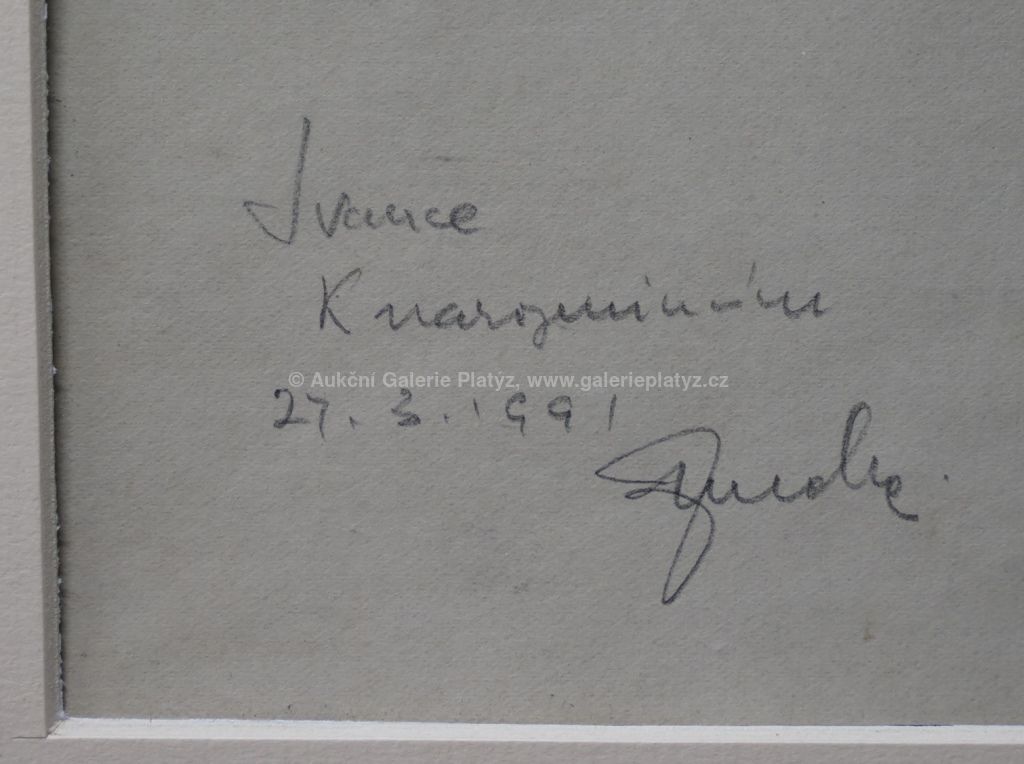 Ivance
K narozeninám
© Aukční Galerie Platýz, www.galerieplatyz.cz
27. 3. 1991